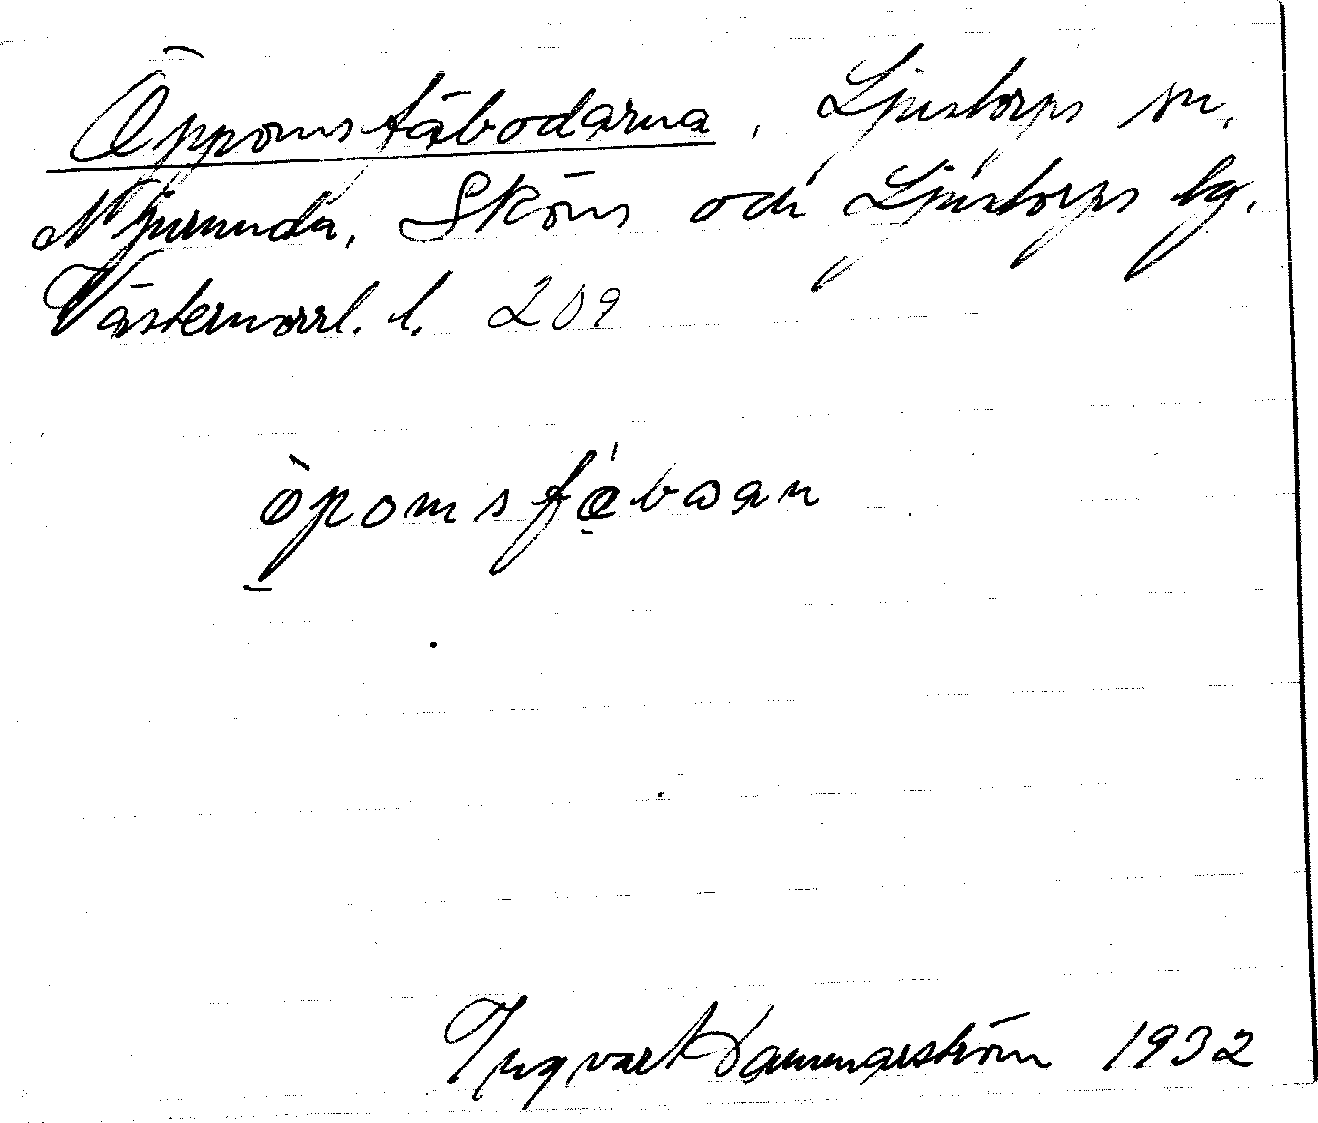 Öppomsfäbodarna, Ljustorps sn.
Njurunda, Sköns och Ljustorps tg.
Västernorrl. l. 209
öpomsfäboan
Ingvar Hammarström 1932